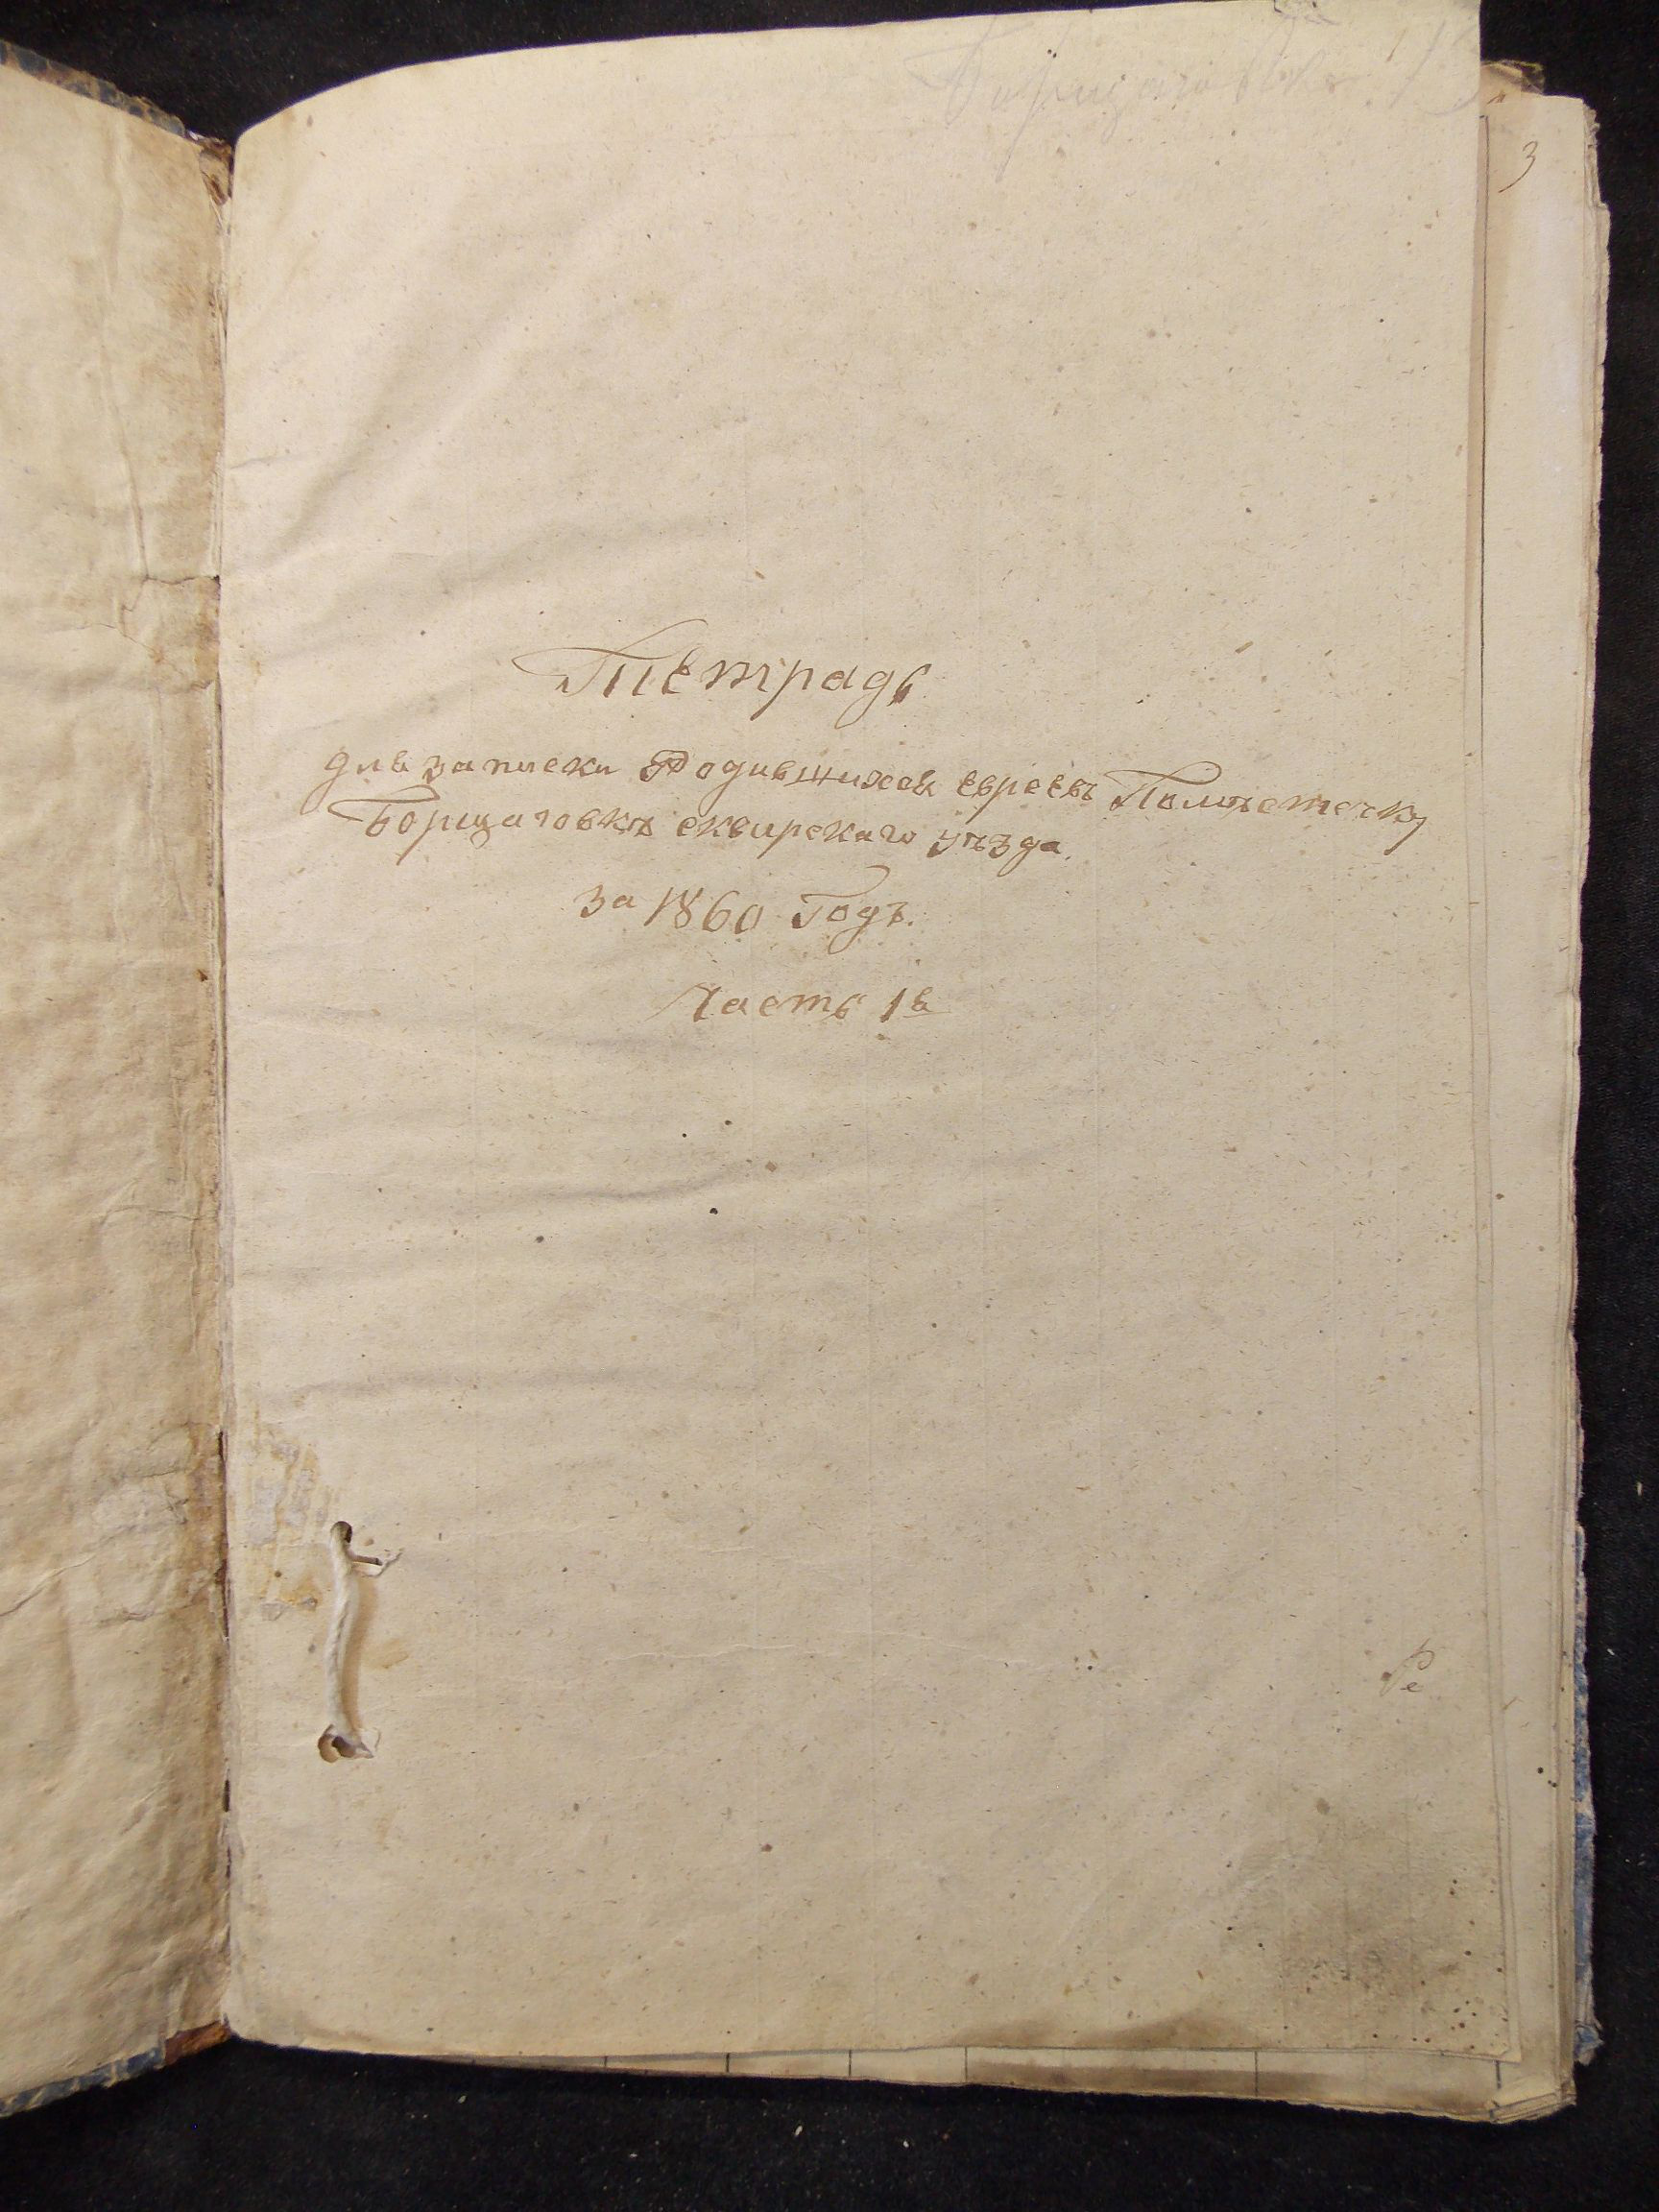 Борщаговка
3
Тетрадь
для записки Родившихся евреевъ Помѣстечку
Борщаговкѣ сквирскаго уѣзда.
за 1860 Годъ.
Часть 1я
Ре